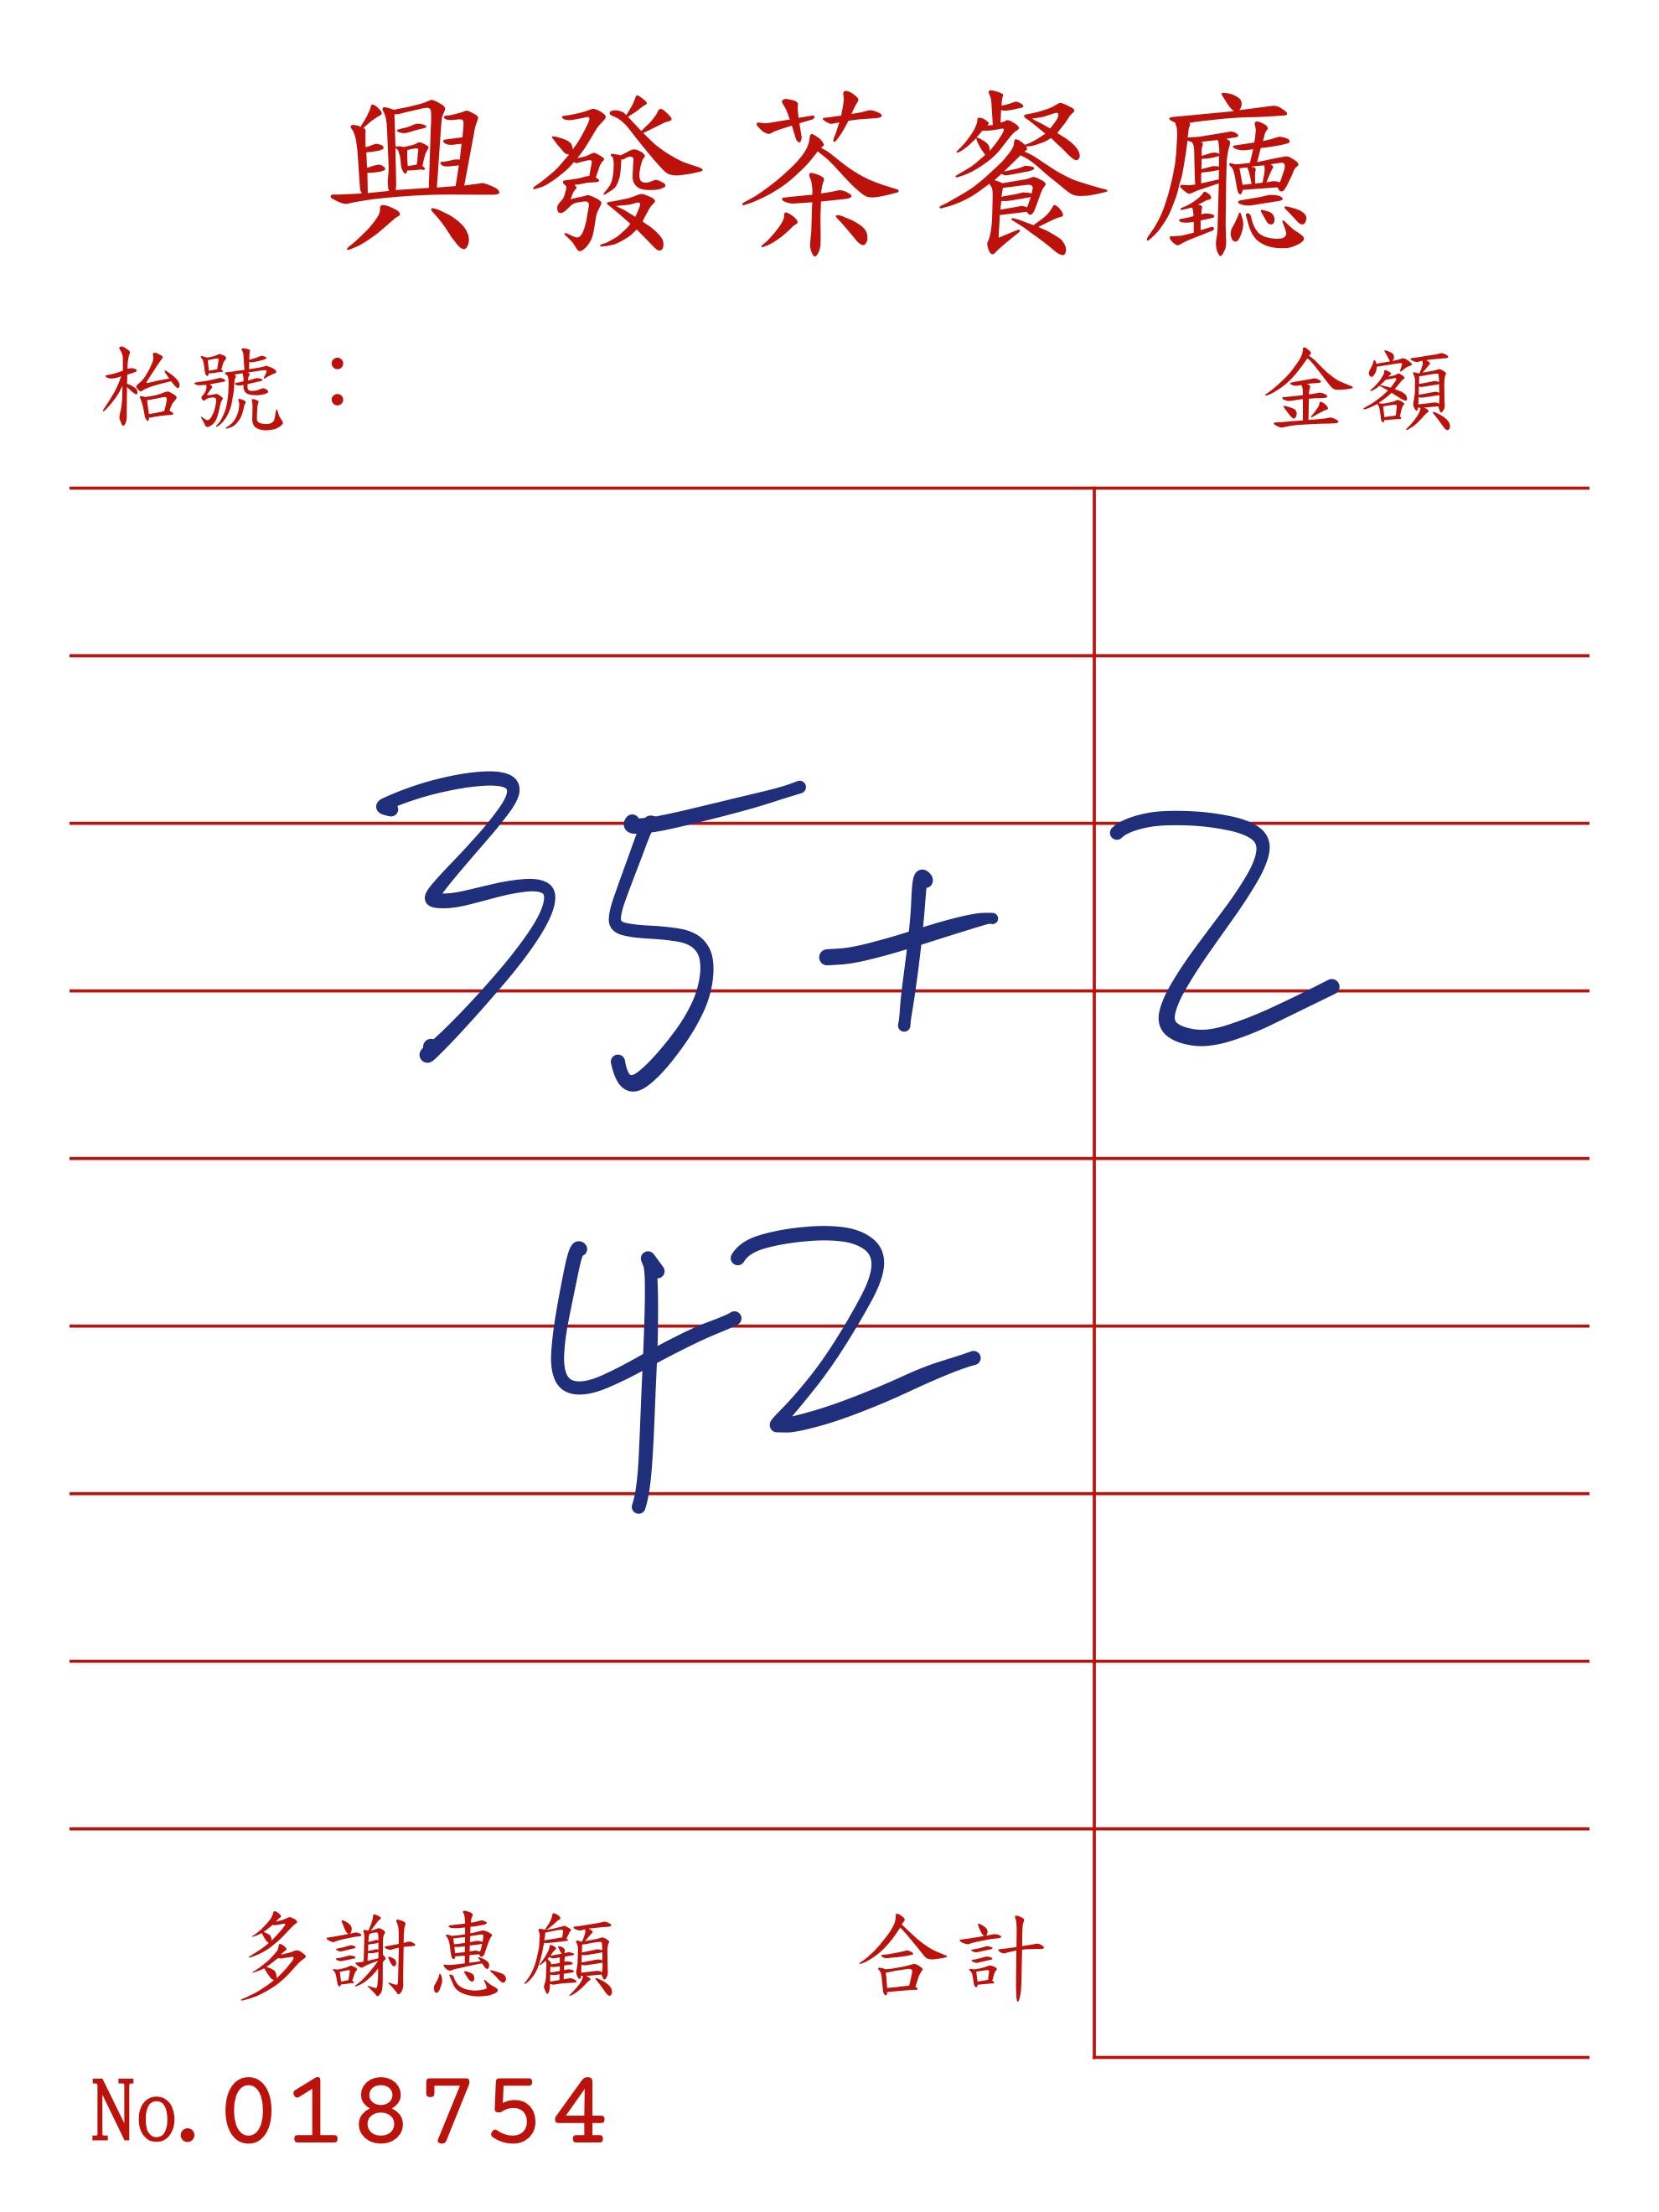 興發茶餐廳
枱號： 金額
35+2
42
多謝惠顧 合計
No.018754